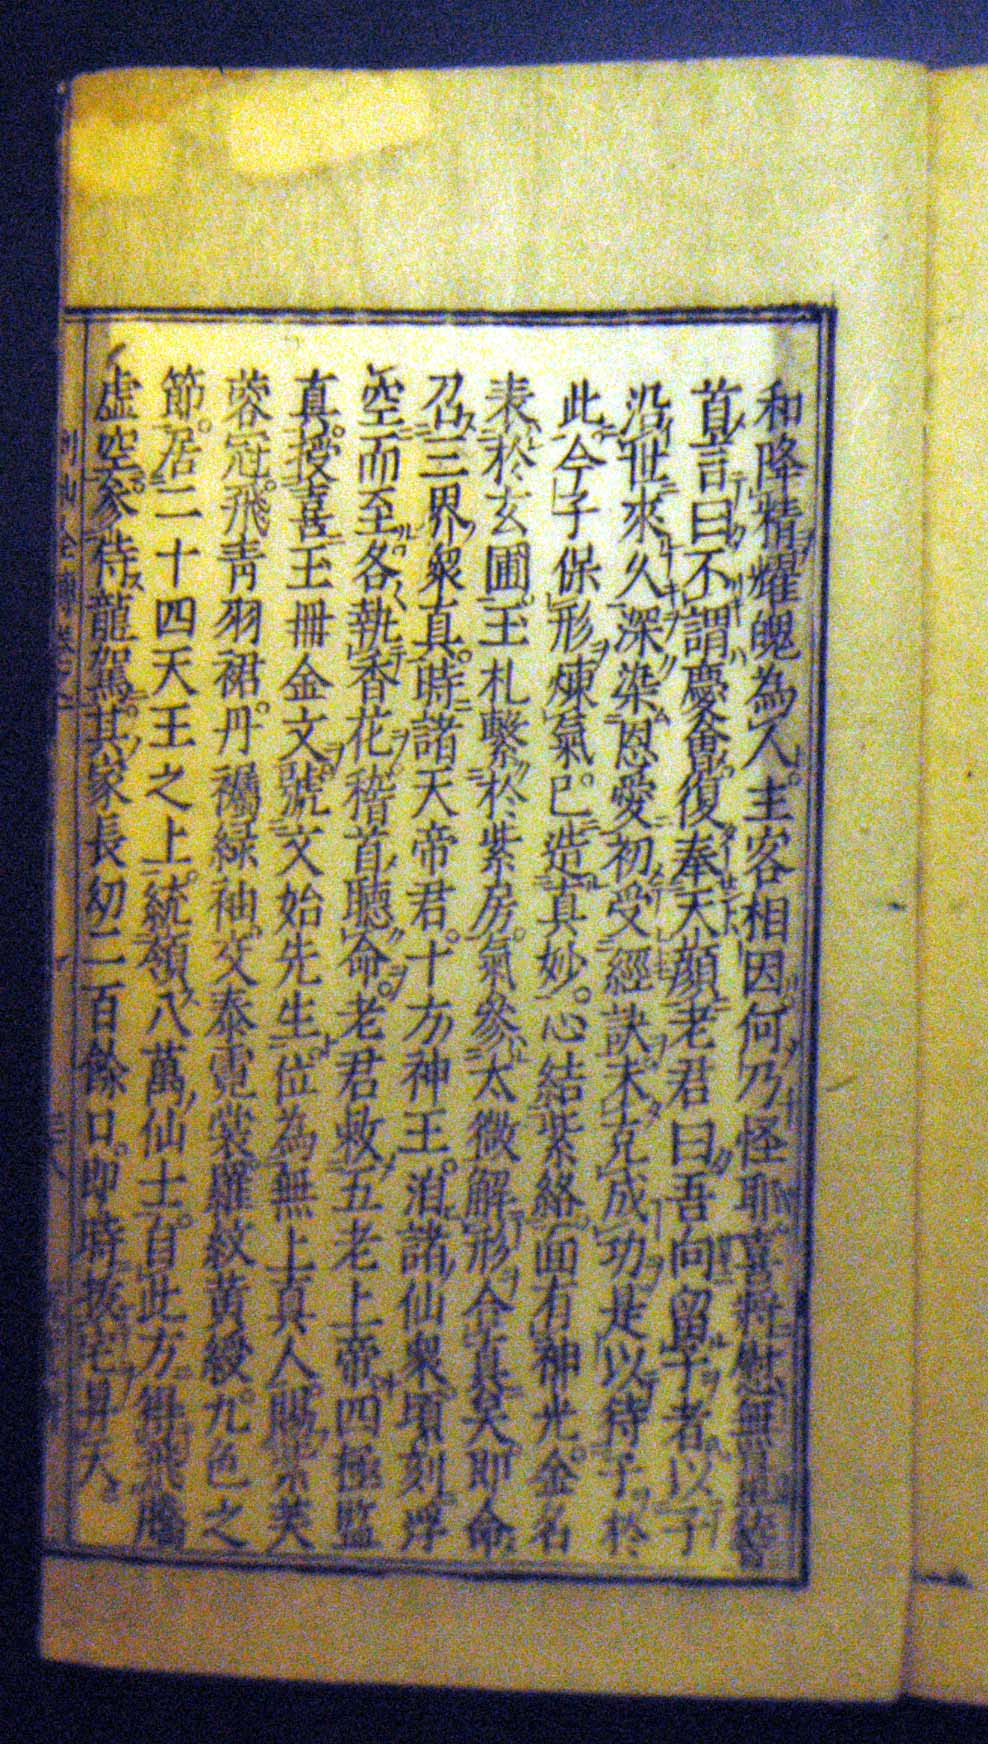 和降精耀魄為人主客相因何乃怪耶喜抃慰無量稽
首言曰不謂慶會復奉天顏老君曰吾向留子者以子
沿世來久深染恩愛初受經訣未克成功是以待子於
此今子保形煉氣已造真妙心結紫絡面有神光金名
表於玄圃玉札繫於紫房氣參太微解形合真矣即命
召三界衆真時諸天帝君十方神王洎諸仙衆頃刻浮
空而至各執香花稽首聽命老君敕五老上帝四極監
真授喜玉冊金文號文始先生位為無上真人賜紫芙
蓉冠飛青羽裙丹襡綠袖交奉霓裳羅紋黃綬九色之
節居二十四天王之上統領八萬仙士自此方得飛騰
虛空參待龍駕其家長幼二百餘口即時拔宅昇天
列仙全傳